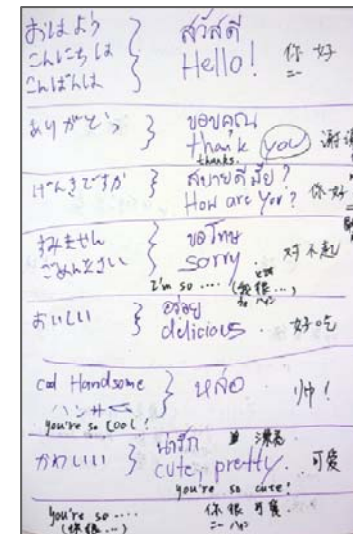 おはよう
こんにちは
こんばんは
สวัสดี
Hello!
你好
ニー
ありがとう
ขอบคุณ
thank you
thanks.
谢谢
げんきですか
สบายดีมั้ย?
How are you?
你好
すみません
ごめんなさい
ขอโทษ
sorry
对不起
I'm so .... (我很...)
おいしい
อร่อย
delicious
好吃
cool Handsome
ハンサム
หล่อ
帅!
you're so cool!
かわいい
น่ารัก
漂亮
cute, pretty.
可爱
you're so cute!
you're so ....
(你很...)
你很可爱
ニー ハン